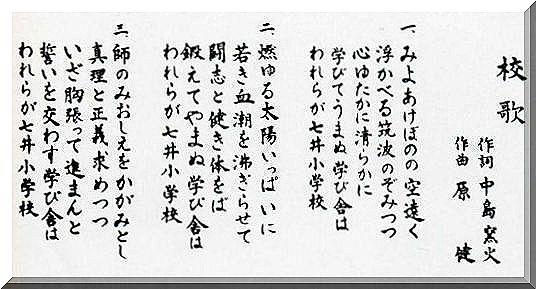 校歌
作詞 中島窯火
作曲 原健
一、みよあけぼのの空遠く
浮かべる筑波のぞみつつ
心ゆたかに清らかに
学びてうまぬ学び舎は
われらが七井小学校
二、燃ゆる太陽いっぱいに
若き血潮を沸ぎらせて
闘志と健き体をば
鍛えてやまぬ学び舎は
われらが七井小学校
三、師のみおしえをかがみとし
真理と正義求めつつ
いざ胸張って進まんと
誓いを交わす学び舎は
われらが七井小学校